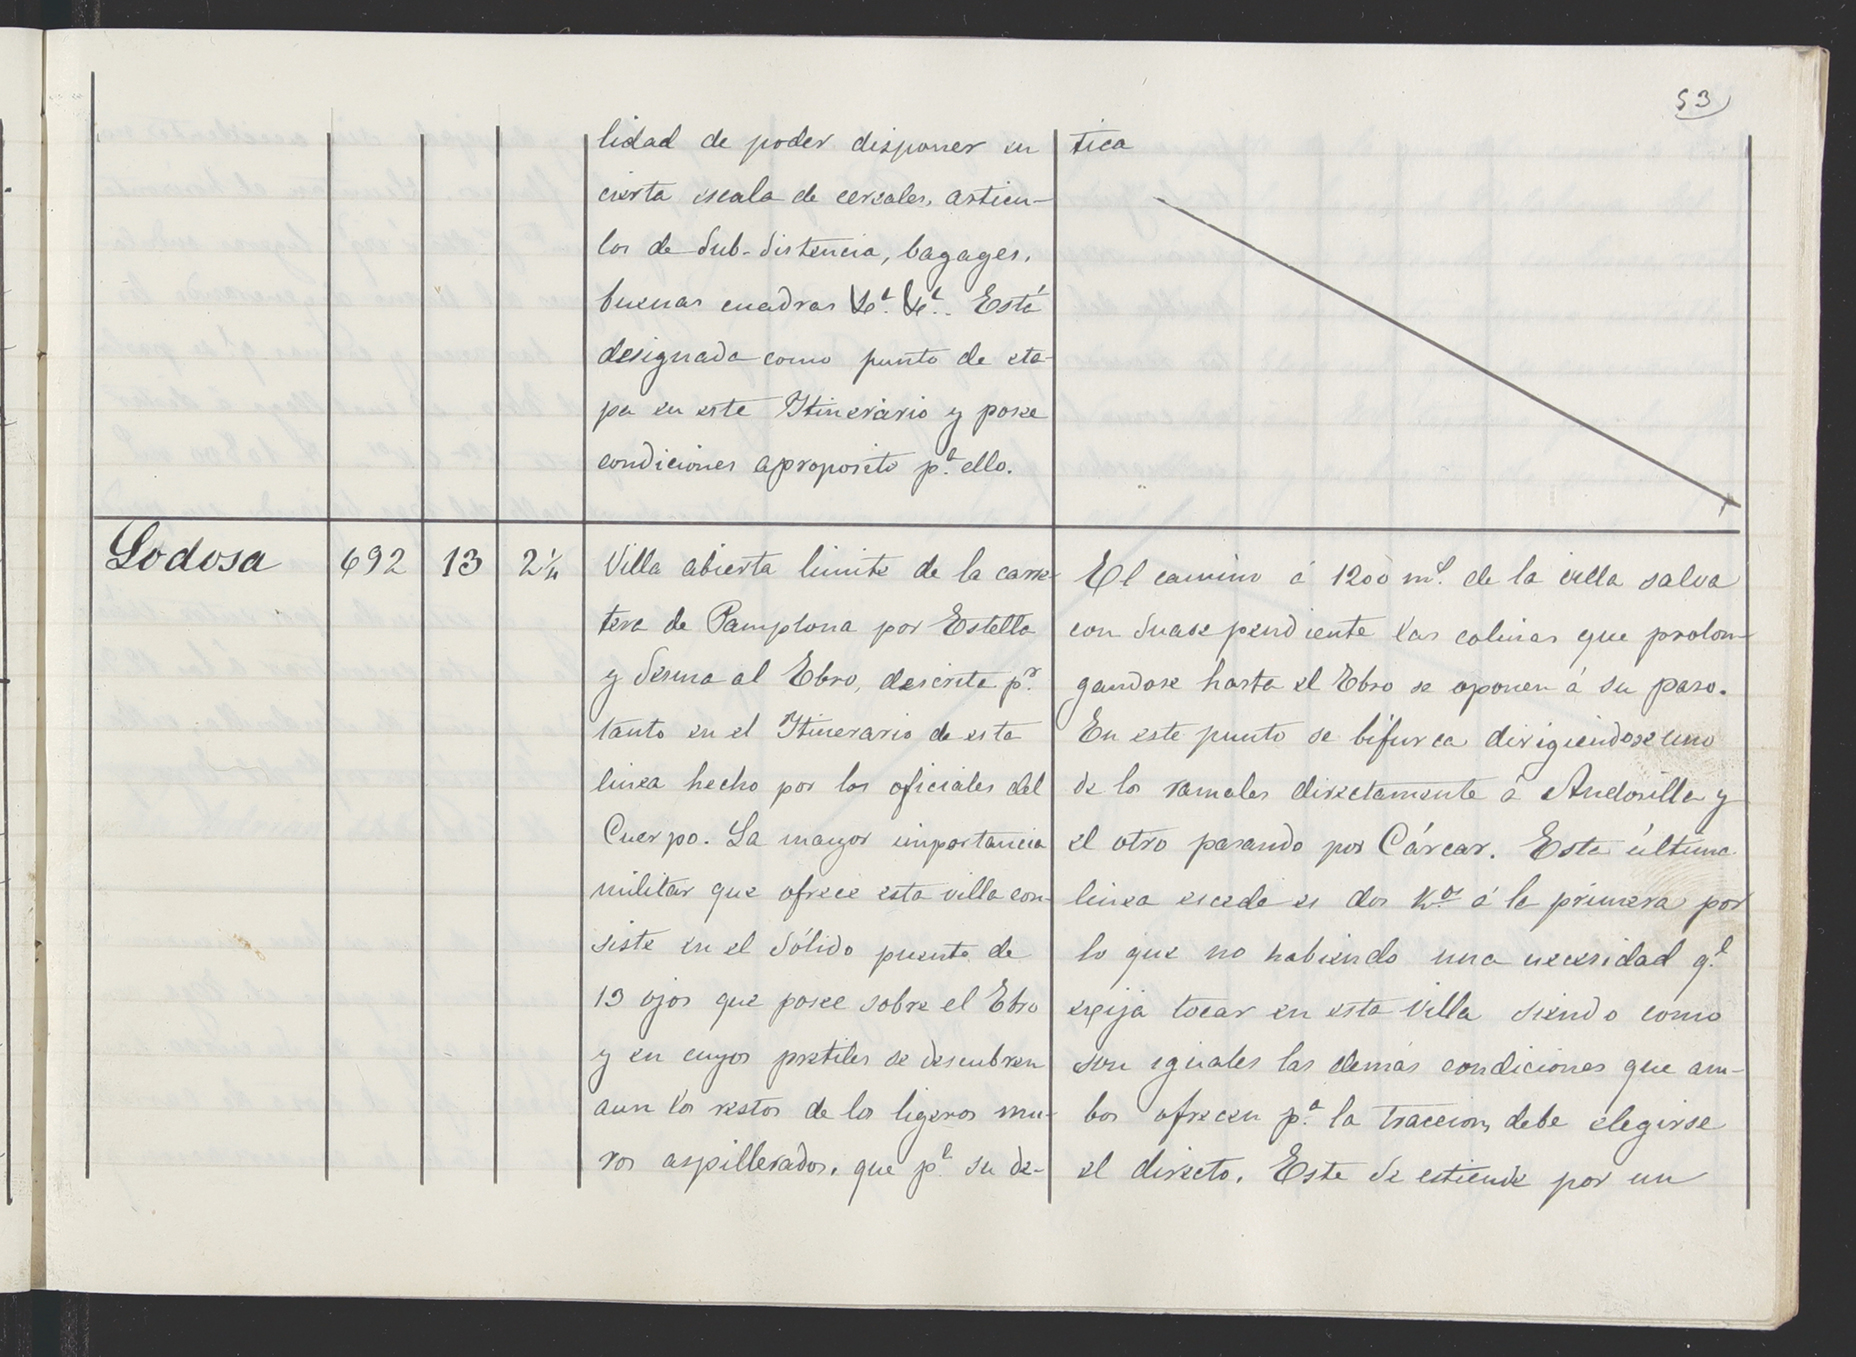 53
lidad de poder disponer en
cierta escala de cereales, articu-
los de Sub-sistencia, bagages,
buenas cuadras &ª. &ª.. Está
designada como punto de eta-
pa en este Itinerario y posee
condiciones aproposito p.ª ello.
tica
Lodosa 692 13 2¼
Villa abierta limite de la carre-
tera de Pamplona por Estella
y Sesma al Ebro, descrita p.r
tanto en el Itinerario de esta
linea hecho por los oficiales del
Cuerpo. La mayor importancia
militar que ofrece esta villa con-
siste en el sólido puente de
13 ojos que posee sobre el Ebro
y en cuyos pretiles se descubren
aun los restos de los ligeros mu-
ros aspillerados, que p.ª su de-
El camino á 1200 m.s de la villa salva
con suave pendiente las colinas que prolon-
gandose hasta el Ebro se oponen á su paso.
En este punto se bifurca dirigiendose uno
de los ramales directamente á Andosilla y
el otro pasando por Cárcar. Esta última
linea escede es dos K.os á la primera por
lo que no habiendo una necesidad q.e
exija tocar en esta villa siendo como
son iguales las demás condiciones que am-
bos ofrecen p.ª la traccion, debe elegirse
el directo. Este se estiende por un